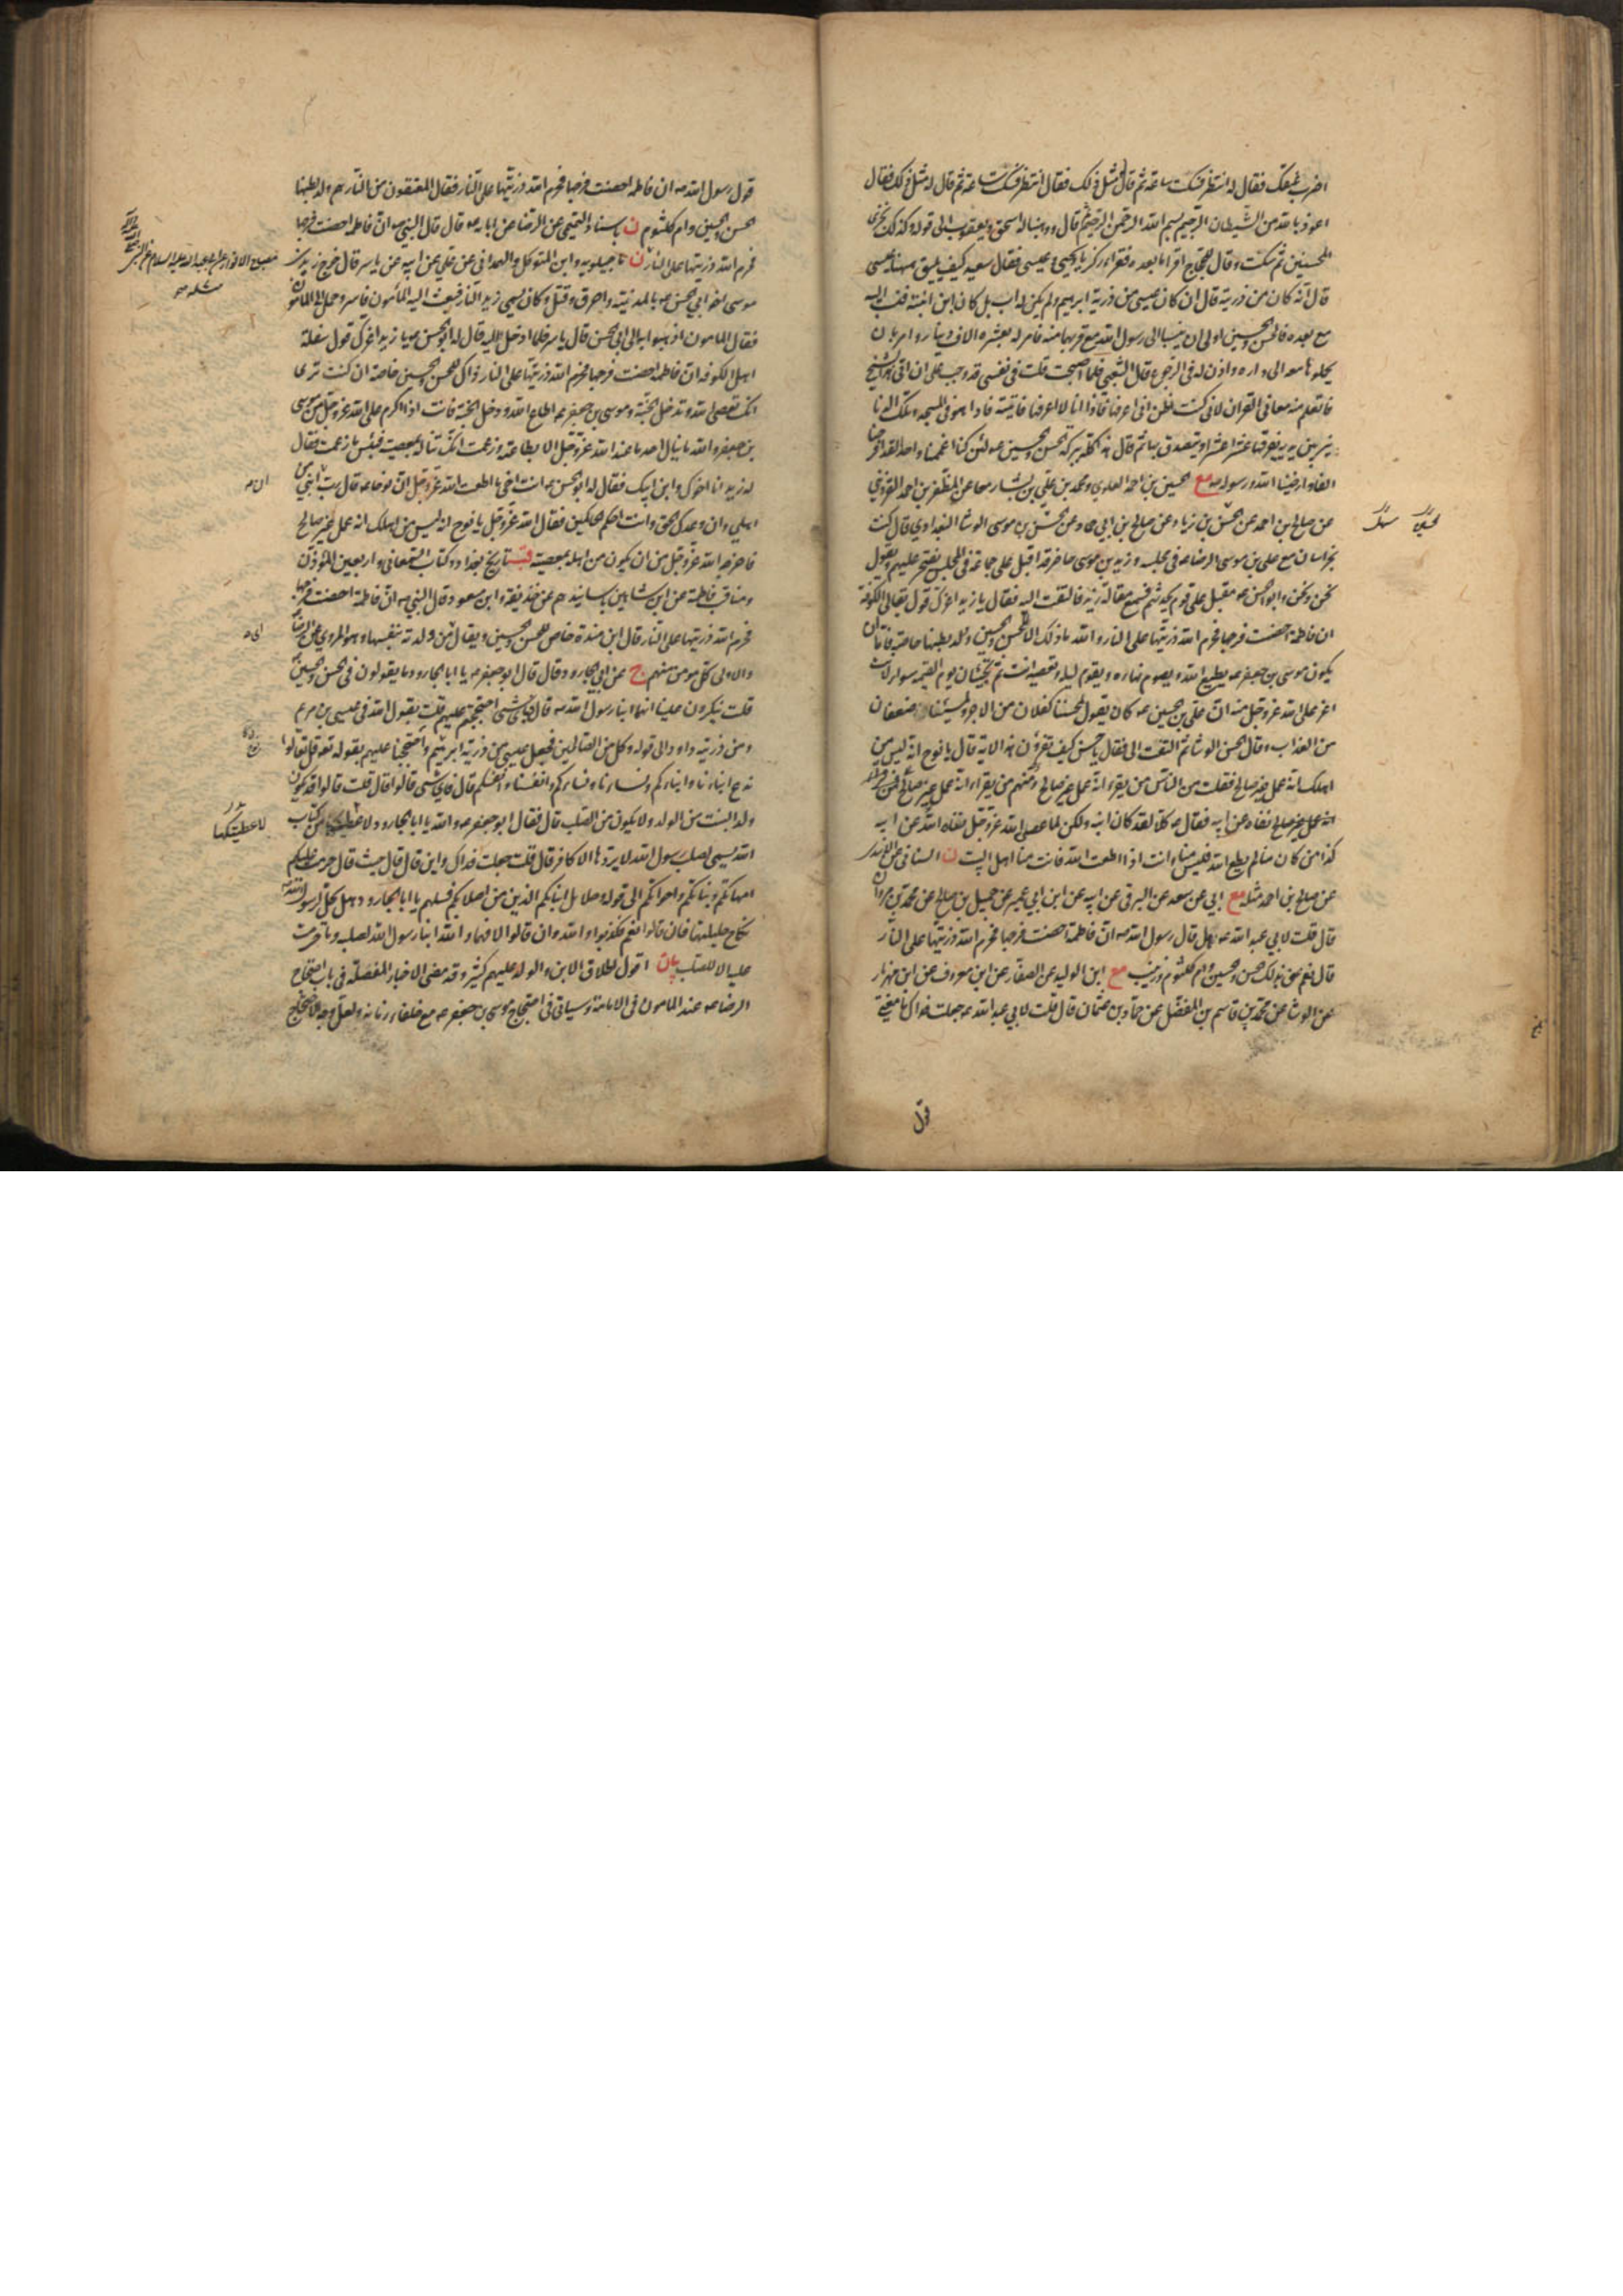 اضرب عنقك فقال له انتظر فسكت ساعة ثم قال له مثل ذلك فقال انتظر فسكت ساعة ثم قال له مثل ذلك فقال
اعوذ بالله من الشيطان الرجيم بسم الله الرحمن الرحيم ثم قال ووهبنا له اسحق ويعقوب الى قوله وكذلك نجزى
المحسنين ثم سكت وقال للحجاج اقرأ ما بعده فقرأ وزكريا ويحيى وعيسى فقال سعيد كيف يليق ههنا عيسى
قال انه كان من ذريته قال ان كان عيسى من ذرية ابرهيم ولم يكن له اب بل كان ابن ابنته فنسب اليه
مع بعده فالحسن والحسين اولى ان ينسبا الى رسول الله مع قربهما منه فامر له بعشرة الاف دينار وامر بان
يحملوها معه الى داره واذن له فى الرجوع قال الشعبي فلما اصبحت قلت فى نفسى قد وجب على ان اتى هذا الشيخ
فاتعلم منه معانى القران لانى كنت اظن انى اعرفها فاذا انا لا اعرفها فاتيته فاذا هو فى المسجد وتلك الدنانير
بين يديه يفرقها عشرا عشرا ويتصدق بها ثم قال هذا كله ببركة الحسن والحسين ع لئن كنا اغممنا واحدا لقد افرحنا
الفا وارضينا الله ورسوله ص مع الحسين بن احمد العلوي ومحمد بن علي بن بشار معا عن المظفر بن احمد القزويني
عن صالح بن احمد عن الحسن بن زياد عن صالح بن ابي حماد عن الحسن بن موسى الوشا البغدادي قال كنت
بخراسان مع على بن موسى الرضا ع فى مجلسه وزيد بن موسى حاضر قد اقبل على جماعة فى المجلس يفتخر عليهم ويقول
نحن ونحن وابو الحسن ع مقبل على قوم يحدثهم فسمع مقالة زيد فالتفت اليه فقال يا زيد اغرك قول بقالى الكوفة
ان فاطمة احصنت فرجها فحرم الله ذريتها على النار والله ما ذلك الا للحسن والحسين وولد بطنها خاصة فاما ان
يكون موسى بن جعفر ع يطيع الله ويصوم نهاره ويقوم ليله وتعصيه انت ثم تجيئان يوم القيمة سواء لانت
اعز على الله عز وجل منه ان على بن الحسين ع كان يقول لمحسننا كفلان من الاجر ولمسيئنا ضعفان
من العذاب وقال الحسن الوشا ثم التفت الى فقال يا حسن كيف تقرؤن هذه الاية قال يا نوح انه ليس من
اهلك انه عمل غير صالح فقلت من الناس من يقرء انه عمل غير صالح ومنهم من يقرء انه عمل غير صالح فمن قرأ
انه عمل غير صالح نفاه عن ابيه فقال ع كلا لقد كان ابنه ولكن لما عصى الله عز وجل نفاه الله عن ابيه
كذا من كان منا لم يطع الله فليس منا وانت اذا اطعت الله فانت منا اهل البيت ن السنانى عن الاسدى
عن صالح بن احمد مثله مع ابي عن سعد عن البرقى عن ابيه عن ابن ابي عمير عن جميل بن صالح عن محمد بن مروان
قال قلت لابي عبد الله ع هل قال رسول الله ص ان فاطمة احصنت فرجها فحرم الله ذريتها على النار
قال نعم عنى بذلك الحسن والحسين وام كلثوم وزينب مع ابن الوليد عن الصفار عن ابن معروف عن ابن مهزيار
عن الوشا عن محمد بن قاسم بن المفضل عن حماد بن عثمان قال قلت لابي عبد الله ع جعلت فداك ما معنى
قول
قول رسول الله ص ان فاطمة احصنت فرجها فحرم الله ذريتها على النار فقال المعتقون من النار هم ولد بطنها
الحسن والحسين وام كلثوم ن باسناد التميمى عن الرضا عن ابائه ع قال قال النبى ص ان فاطمة احصنت فرجها
فحرم الله ذريتها على النار ن ماجيلويه وابن المتوكل والهمدانى عن على عن ابيه عن ياسر قال خرج زيد بن
موسى اخو ابي الحسن ع بالمدينة واحرق وقتل وكان يسمى زيد النار فبعث اليه المأمون فاسر وحمل الى المأمون
فقال المأمون اذهبوا به الى ابى الحسن قال ياسر فلما ادخل اليه قال له ابو الحسن ع يا زيد اغرك قول سفلة
اهل الكوفة ان فاطمة احصنت فرجها فحرم الله ذريتها على النار ذاك للحسن والحسين خاصة ان كنت ترى
انك تعصى الله وتدخل الجنة وموسى بن جعفر ع اطاع الله ودخل الجنة فانت اذا اكرم على الله عز وجل من موسى
بن جعفر والله ما ينال احد ما عند الله عز وجل الا بطاعته وزعمت انك تناله بمعصيته فبئس ما زعمت فقال
له زيد انا اخوك وابن ابيك فقال له ابو الحسن ع انت اخى ما اطعت الله عز وجل ان نوحا ع قال رب ان ابنى من
اهلى وان وعدك الحق وانت احكم الحاكمين فقال الله عز وجل يا نوح انه ليس من اهلك انه عمل غير صالح
فاخرجه الله عز وجل من ان يكون من اهله بمعصيته قب تاريخ بغداد وكتاب السمعانى واربعين المؤذن
ومناقب فاطمة عن ابن شاهين باسانيدهم عن حذيفة وابن مسعود قال النبي ص ان فاطمة احصنت فرجها
فحرم الله ذريتها على النار قال ابن مندة خاص للحسن والحسين ويقال من ولدته بنفسها وهو المروي عن الرضا
والاولى كل مومن منهم ج عن ابي الجارود قال قال ابو جعفر ع يا ابا الجارود ما يقولون فى الحسن والحسين
قلت ينكرون علينا انهما ابنا رسول الله ص قال فباى شىء احتججتم عليهم قلت بقول الله فى عيسى بن مريم
ومن ذريته داود الى قوله وكل من الصالحين فجعل عيسى من ذرية ابرهيم واحتججنا عليهم بقوله تع قل تعالوا
ندع ابناءنا وابناءكم ونساءنا ونساءكم وانفسنا وانفسكم قال فاى شىء قالوا قال قلت قالوا قد يكون
ولد البنت من الولد ولا يكون من الصلب قال فقال ابو جعفر ع والله يا ابا الجارود من كتاب
الله يسمى لصلب رسول الله لا يردها الا كافر قال قلت جعلت فداك واين قال قال حيث قال حرمت عليكم
امهاتكم وبناتكم واخواتكم الى قوله وحلائل ابنائكم الذين من اصلابكم فسلهم يا ابا الجارود هل يحل لرسول الله ص
نكاح حليلتهما فان قالوا نعم فكذبوا والله وان قالوا لا فهما والله ابنا رسول الله لصلبه وما حرمت
عليه الا للصلب بيان اقول اطلاق الابن والولد عليهم كثير وقد مضى الاخبار المفصلة فى باب احتجاج
الرضا ع عند المأمون فى الامامة وسياتى فى احتجاج موسى بن جعفر ع مع خلفاء زمانه ولعل وجه الاحتجاج
لاعطيتكها